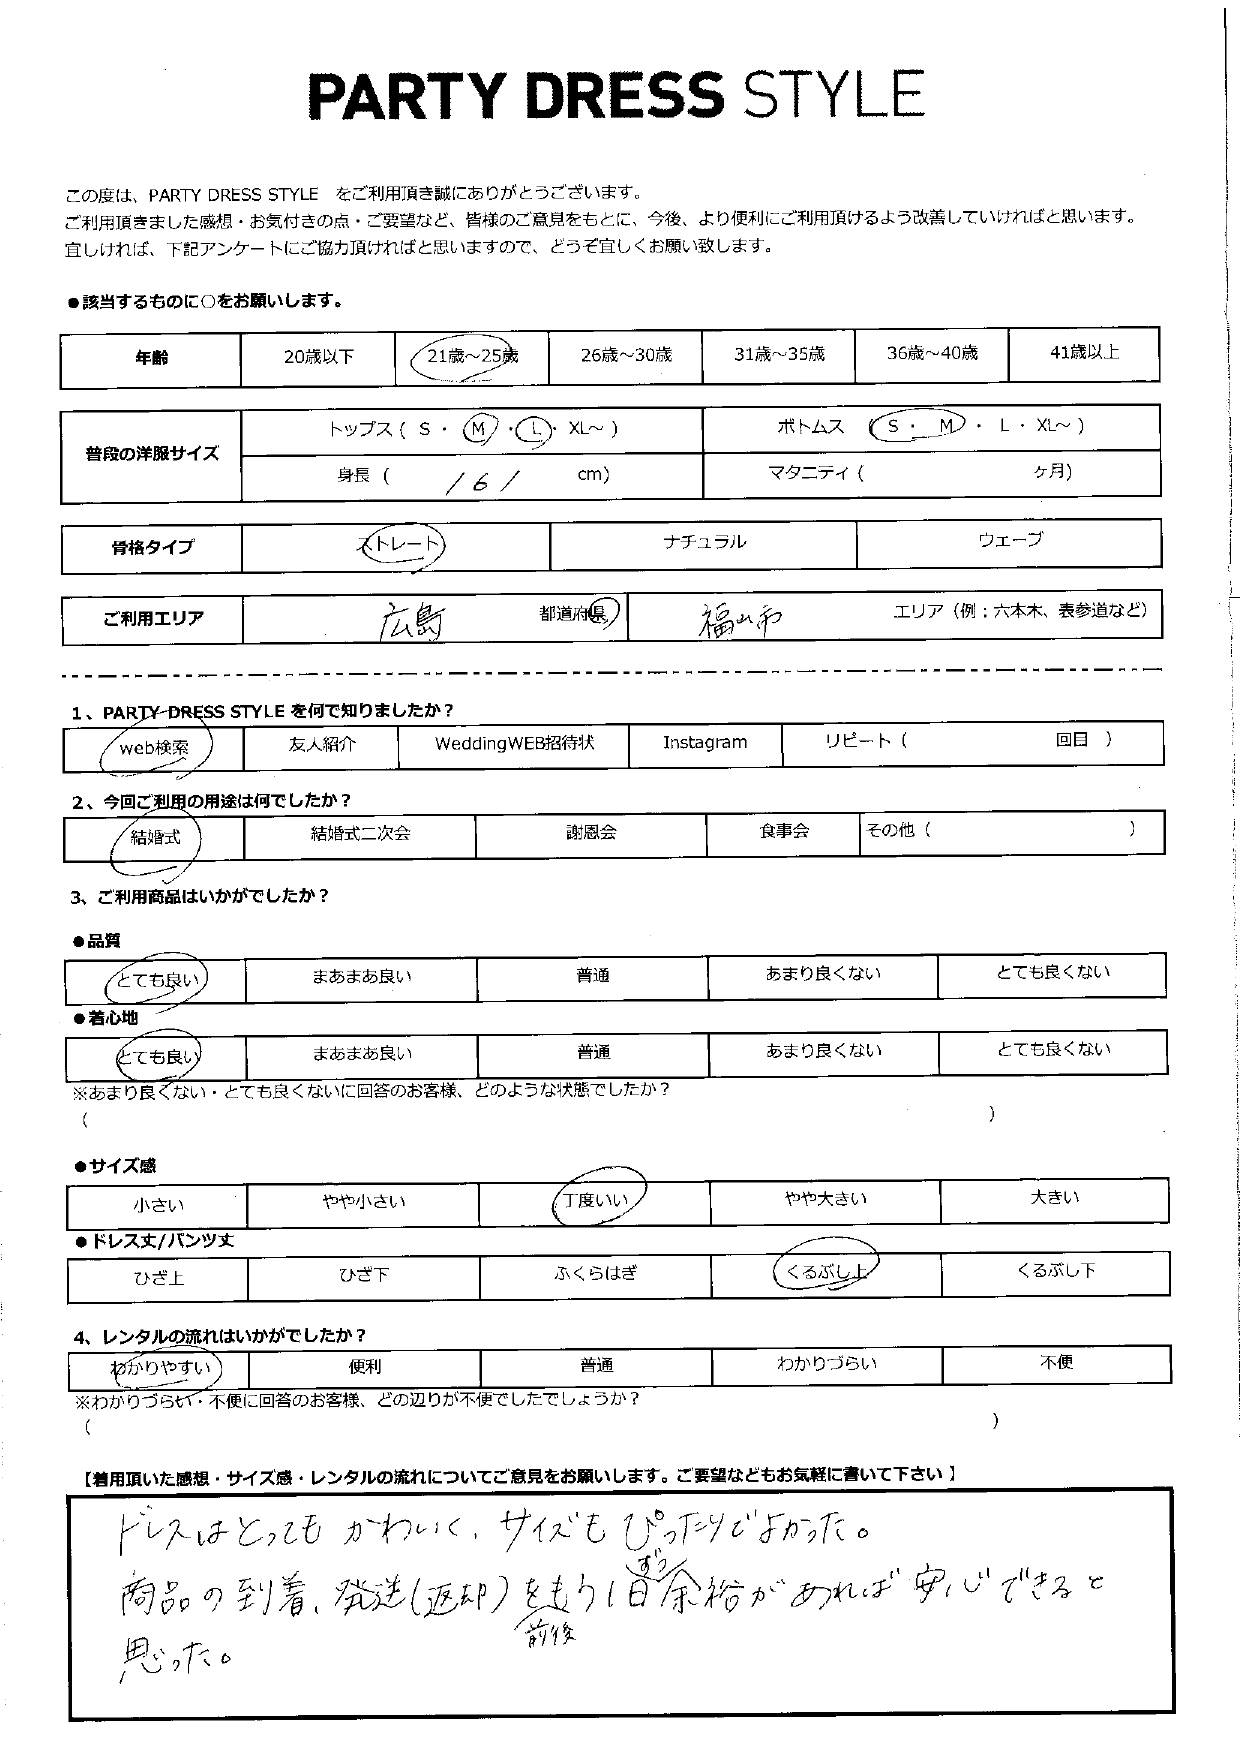 PARTY DRESS STYLE
この度は、PARTY DRESS STYLE をご利用頂き誠にありがとうございます。
ご利用頂きました感想・お気付きの点・ご要望など、皆様のご意見をもとに、今後、より便利にご利用頂けるよう改善していければと思います。
宜しければ、下記アンケートにご協力頂ければと思いますので、どうぞ宜しくお願い致します。
●該当するものに○をお願いします。
年齢 20歳以下 21歳～25歳 26歳～30歳 31歳～35歳 36歳～40歳 41歳以上
普段の洋服サイズ トップス ( S ・ M ・ L ・ XL～ ) ボトムス ( S ・ M ・ L ・ XL～ )
身長 ( 161 cm) マタニティ ( ヶ月)
骨格タイプ ストレート ナチュラル ウェーブ
ご利用エリア 広島 都道府県 福山市 エリア（例；六本木、表参道など）
1、PARTY DRESS STYLE を何で知りましたか？
web検索 友人紹介 WeddingWEB招待状 Instagram リピート ( 回目 )
2、今回ご利用の用途は何でしたか？
結婚式 結婚式二次会 謝恩会 食事会 その他 ( )
3、ご利用商品はいかがでしたか？
●品質
とても良い まあまあ良い 普通 あまり良くない とても良くない
●着心地
とても良い まあまあ良い 普通 あまり良くない とても良くない
※あまり良くない・とても良くないに回答のお客様、どのような状態でしたか？
( )
●サイズ感
小さい やや小さい 丁度いい やや大きい 大きい
●ドレス丈/パンツ丈
ひざ上 ひざ下 ふくらはぎ くるぶし上 くるぶし下
4、レンタルの流れはいかがでしたか？
わかりやすい 便利 普通 わかりづらい 不便
※わかりづらい・不便に回答のお客様、どの辺りが不便でしたでしょうか？
( )
【着用頂いた感想・サイズ感・レンタルの流れについてご意見をお願いします。ご要望などもお気軽に書いて下さい 】
ドレスはとってもかわいく、サイズもぴったりでよかった。
ずつ
商品の到着、発送(返却)をもう1日余裕があれば安心できると
前後
思った。